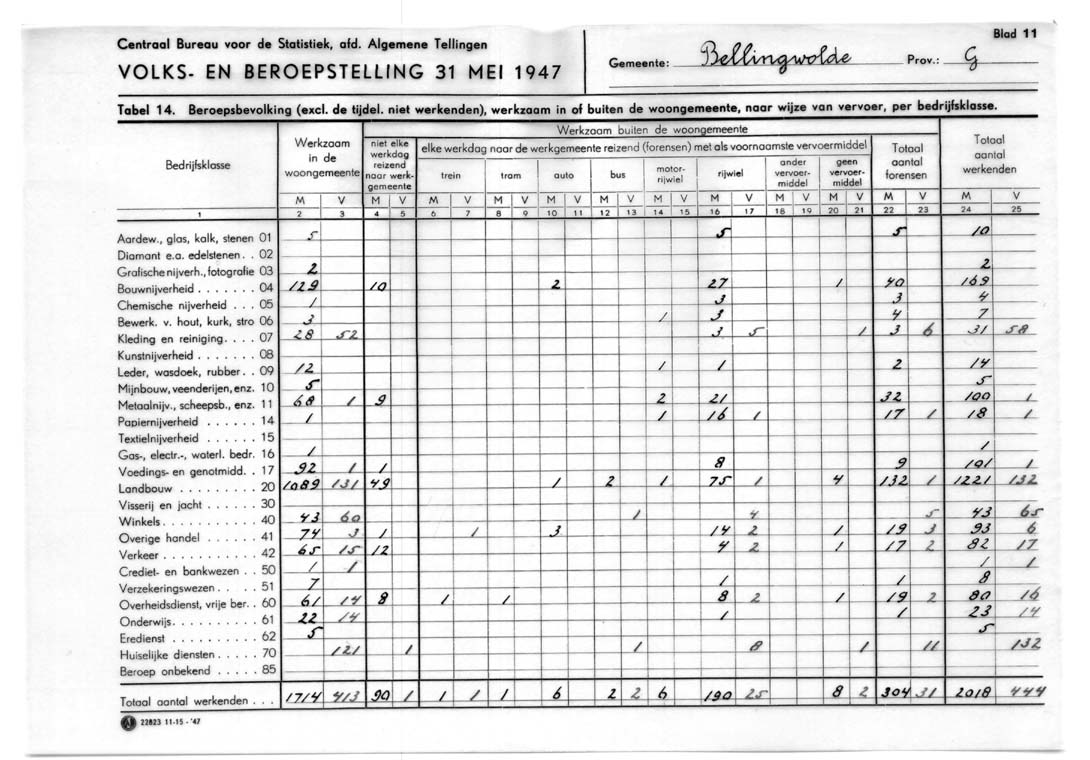 Centraal Bureau voor de Statistiek, afd. Algemene Tellingen
VOLKS- EN BEROEPSTELLING 31 MEI 1947
Gemeente: Bellingwolde Prov.: G
Blad 11
Tabel 14. Beroepsbevolking (excl. de tijdel. niet werkenden), werkzaam in of buiten de woongemeente, naar wijze van vervoer, per bedrijfsklasse.
Bedrijfsklasse
Werkzaam in de woongemeente
Werkzaam buiten de woongemeente
niet elke werkdag reizend naar werkgemeente
elke werkdag naar de werkgemeente reizend (forensen) met als voornaamste vervoermiddel
trein tram auto bus motor-rijwiel rijwiel ander vervoer-middel geen vervoer-middel
Totaal aantal forensen
Totaal aantal werkenden
M V M V M V M V M V M V M V M V M V M V M V M V
1 2 3 4 5 6 7 8 9 10 11 12 13 14 15 16 17 18 19 20 21 22 23 24 25
Aardew., glas, kalk, stenen 01 5 5 5 10
Diamant e.a. edelstenen . . 02
Grafische nijverh., fotografie 03 2 2
Bouwnijverheid . . . . . . . 04 129 10 2 27 1 40 169
Chemische nijverheid . . . 05 1 3 3 4
Bewerk. v. hout, kurk, stro 06 3 1 3 4 7
Kleding en reiniging. . . . 07 28 52 3 5 1 3 6 31 58
Kunstnijverheid . . . . . . . 08
Leder, wasdoek, rubber. . 09 12 1 1 2 14
Mijnbouw, veenderijen, enz. 10 5 5
Metaalnijv., scheepsb., enz. 11 68 1 9 2 21 32 100 1
Papiernijverheid . . . . . . 14 1 1 16 1 17 1 18 1
Textielnijverheid . . . . . . 15
Gas-, electr.-, waterl. bedr. 16 1 1
Voedings- en genotmidd. . 17 92 1 1 8 9 101 1
Landbouw . . . . . . . . . 20 1089 131 49 1 2 1 75 1 4 132 1 1221 132
Visserij en jacht . . . . . . 30
Winkels. . . . . . . . . . . 40 43 60 1 4 5 43 65
Overige handel . . . . . . 41 74 3 1 1 3 14 2 1 19 3 93 6
Verkeer . . . . . . . . . . . 42 65 15 12 4 2 1 17 2 82 17
Crediet- en bankwezen . . 50 1 1 1 1
Verzekeringswezen. . . . . 51 7 1 1 8
Overheidsdienst, vrije ber. . 60 61 14 8 1 1 8 2 1 19 2 80 16
Onderwijs. . . . . . . . . . 61 22 14 1 1 23 14
Eredienst . . . . . . . . . . 62 5 5
Huiselijke diensten . . . . . 70 121 1 1 8 1 11 132
Beroep onbekend . . . . . 85
Totaal aantal werkenden . . . 1714 413 90 1 1 1 1 6 2 2 6 190 25 8 2 304 31 2018 444
22823 11-15 - '47